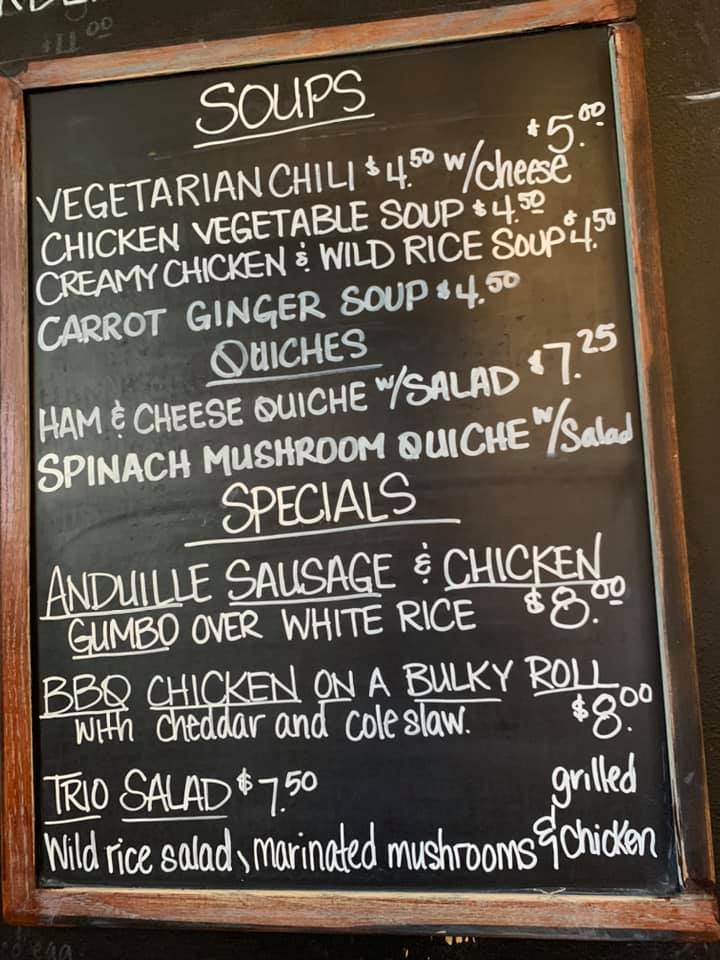 $11.00
SOUPS
VEGETARIAN CHILI $4.50 w/cheese $5.00
CHICKEN VEGETABLE SOUP $4.50
CREAMY CHICKEN & WILD RICE SOUP $4.50
CARROT GINGER SOUP $4.50
QUICHES
HAM & CHEESE QUICHE w/SALAD $7.25
SPINACH MUSHROOM QUICHE w/Salad
SPECIALS
ANDUILLE SAUSAGE & CHICKEN
GUMBO OVER WHITE RICE $8.00
BBQ CHICKEN ON A BULKY ROLL
with cheddar and coleslaw. $8.00
TRIO SALAD $7.50
Wild rice salad, marinated mushrooms & grilled chicken
egg